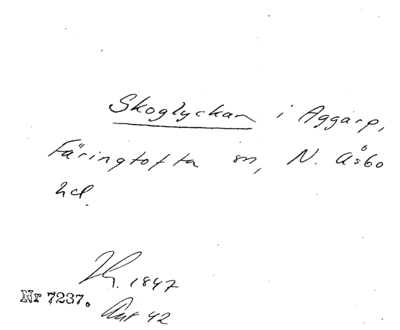 Skoglyckan i Aggarp,
Färingtofta sn, N. Åsbo
hd.
1847
Nr 7237.
Ant 42